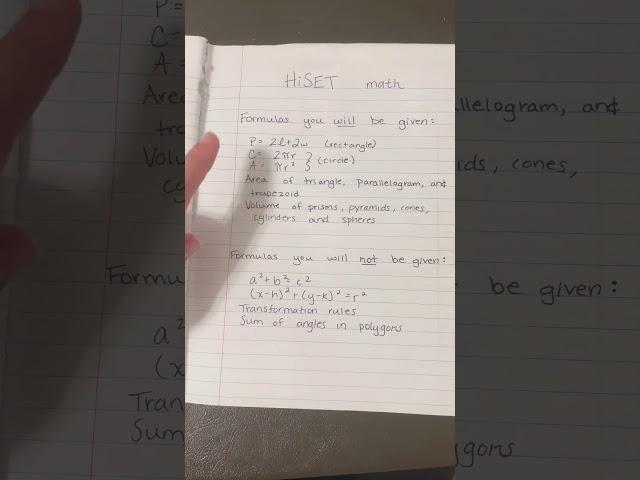 HiSET math
Formulas you will be given:
P = 2l+2w (rectangle)
C = 2πr } (circle)
A = πr²
Area of triangle, parallelogram, and
trapezoid
Volume of prisms, pyramids, cones,
cylinders and spheres
Formulas you will not be given:
a²+b²=c²
(x-h)²+(y-k)²=r²
Transformation rules
Sum of angles in polygons